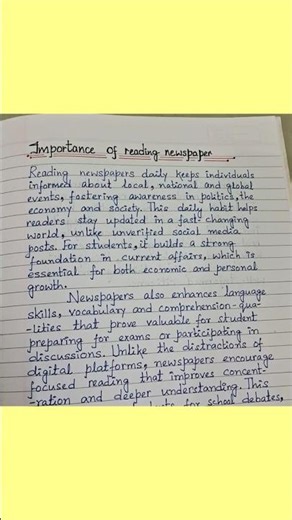 Importance of reading newspaper
Reading newspapers daily keeps individuals
informed about local, national and global
events, fostering awareness in politics, the
economy and society. This daily habit helps
readers stay updated in a fast-changing
world, unlike unverified social media
posts. For students, it builds a strong
foundation in current affairs, which is
essential for both economic and personal
growth.
Newspapers also enhances language
skills, vocabulary and comprehension-qua-
-lities that prove valuable for student
preparing for exams or participating in
discussions. Unlike the distractions of
digital platforms, newspapers encourage
focused reading that improves concent-
-ration and deeper understanding. This
for school debates,